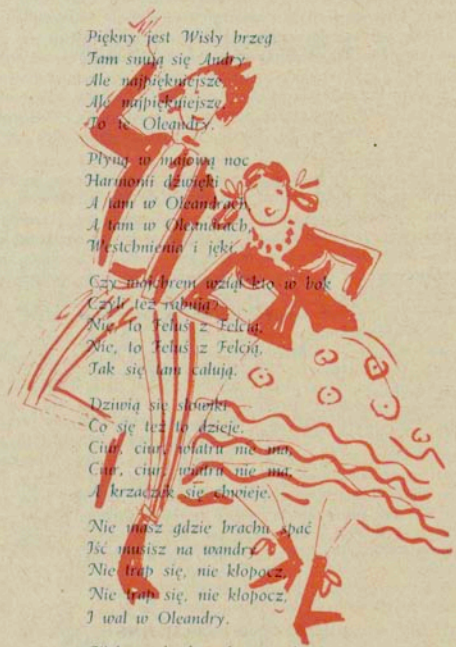 Piękny jest Wisły brzeg
Tam snują się Andry
Ale najpiękniejsze,
Ale najpiękniejsze,
To te Oleandry.
Płyną w majową noc
Harmonii dźwięki
A tam w Oleandrach,
A tam w Oleandrach,
Westchnienia i jęki.
Czy mojchrem wziął kto w bok
Czyli też rabują?
Nie, to Feluś z Felcią,
Nie, to Feluś z Felcią,
Tak się tam całują.
Dziwią się słowiki
Co się też to dzieje.
Ciur, ciur, wiatru nie ma,
Ciur, ciur, wiatru nie ma,
A krzaczek się chwieje.
Nie masz gdzie brachu spać
Iść musisz na wandry
Nie trap się, nie kłopocz,
Nie trap się, nie kłopocz,
I wal w Oleandry.